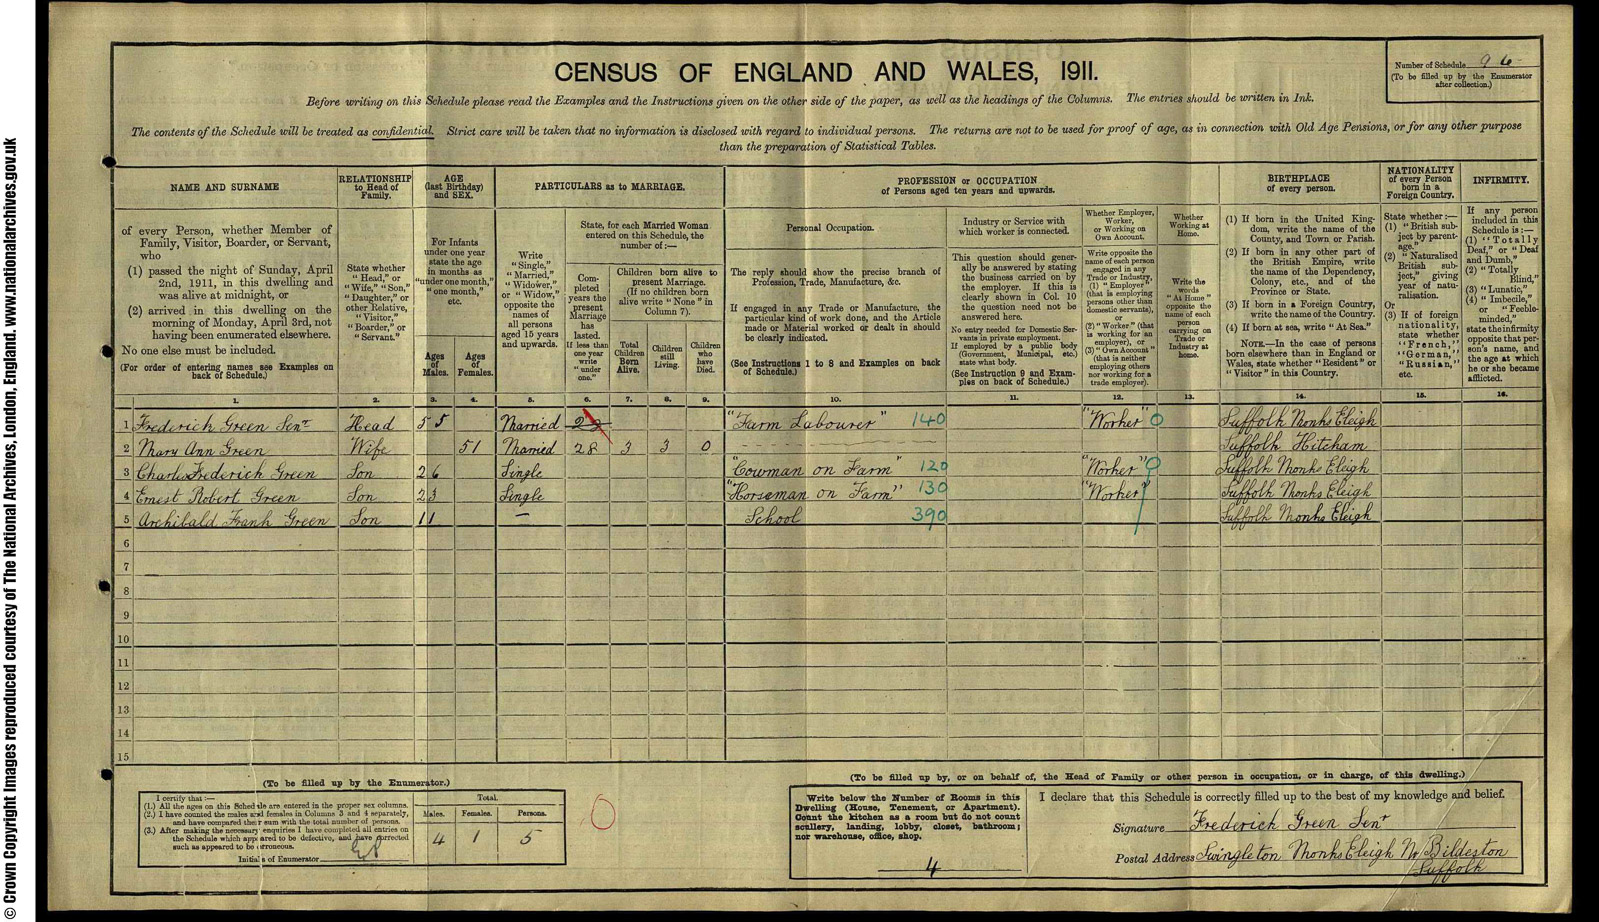 © Crown Copyright Images reproduced courtesy of The National Archives, London, England. www.nationalarchives.gov.uk
CENSUS OF ENGLAND AND WALES, 1911.
Number of Schedule 96
(To be filled up by the Enumerator
after collection.)
Before writing on this Schedule please read the Examples and the Instructions given on the other side of the paper, as well as the headings of the Columns. The entries should be written in Ink.
The contents of the Schedule will be treated as confidential. Strict care will be taken that no information is disclosed with regard to individual persons. The returns are not to be used for proof of age, as in connection with Old Age Pensions, or for any other purpose
than the preparation of Statistical Tables.
NAME AND SURNAME
of every Person, whether Member of
Family, Visitor, Boarder, or Servant,
who
(1) passed the night of Sunday, April
2nd, 1911, in this dwelling and
was alive at midnight, or
(2) arrived in this dwelling on the
morning of Monday, April 3rd, not
having been enumerated elsewhere.
No one else must be included.
(For order of entering names see Examples on
back of Schedule.)
RELATIONSHIP
to Head of
Family.
State whether
"Head," or
"Wife," "Son,"
"Daughter," or
other Relative,
"Visitor,"
"Boarder," or
"Servant."
AGE
(last Birthday)
and SEX.
For Infants
under one year
state the age
in months as
"under one month,"
"one month,"
etc.
Ages
of
Males.
Ages
of
Females.
PARTICULARS as to MARRIAGE.
Write
"Single,"
"Married,"
"Widower,"
or "Widow,"
opposite the
names of
all persons
aged 15 years
and upwards.
State, for each Married Woman
entered on this Schedule, the
number of:—
Completed
years the
present
Marriage
has
lasted.
If less than
one year
write
"under
one."
Children born alive to
present Marriage.
(If no children born
alive write "None" in
Column 7).
Total
Children
Born
Alive.
Children
still
Living.
Children
who
have
Died.
PROFESSION or OCCUPATION
of Persons aged ten years and upwards.
Personal Occupation.
The reply should show the precise branch of
Profession, Trade, Manufacture, &c.
If engaged in any Trade or Manufacture, the
particular kind of work done, and the Article
made or Material worked or dealt in should
be clearly indicated.
(See Instructions 1 to 8 and Examples on back
of Schedule.)
Industry or Service with
which worker is connected.
This question should generally
be answered by stating
the business carried on by
the employer. If this is
clearly shown in Col. 10
the question need not be
answered here.
No entry needed for Domestic Servants
in private employment.
If employed by a public body
(Government, Municipal, etc.)
state what body.
(See Instruction 9 and Examples
on back of Schedule.)
Whether Employer,
Worker,
or Working on
Own Account.
Write opposite the
name of each person
engaged in any
Trade or Industry,
(1) "Employer"
(that is employing
persons other than
domestic servants),
or
(2) "Worker" (that
is working for an
employer), or
(3) "Own Account"
(that is neither
employing others
nor working for a
trade employer).
Whether
Working at
Home.
Write the
words
"At Home"
opposite the
name of each
person
carrying on
Trade or
Industry at
home.
BIRTHPLACE
of every person.
(1) If born in the United Kingdom,
write the name of the
County, and Town or Parish.
(2) If born in any other part of
the British Empire, write
the name of the Dependency,
Colony, etc., and of the
Province or State.
(3) If born in a Foreign Country,
write the name of the Country.
(4) If born at sea, write "At Sea."
NOTE.—In the case of persons
born elsewhere than in England or
Wales, state whether "Resident" or
"Visitor" in this Country.
NATIONALITY
of every Person
born in a
Foreign Country.
State whether:—
(1) "British subject
by parentage."
(2) "Naturalised
British
subject," giving
year of naturalisation.
Or
(3) If of foreign
nationality,
state whether
"French,"
"German,"
"Russian,"
etc.
INFIRMITY.
If any person
included in this
Schedule is:—
(1) "Totally
Deaf," or "Deaf
and Dumb,"
(2) "Totally
Blind,"
(3) "Lunatic,"
(4) "Imbecile,"
or "Feeble-
minded,"
state the infirmity
opposite that person's
name, and
the age at which
he or she became
afflicted.
1. 2. 3. 4. 5. 6. 7. 8. 9. 10. 11. 12. 13. 14. 15. 16.
1 Frederick Green Senr Head 55 Married 28 "Farm Labourer" 140 "Worker" 0 Suffolk Monks Eleigh
2 Mary Ann Green Wife 51 Married 28 3 3 0 Suffolk Hitcham
3 Charles Frederick Green Son 26 Single "Cowman on Farm" 120 "Worker" 0 Suffolk Monks Eleigh
4 Ernest Robert Green Son 23 Single "Horseman on Farm" 130 "Worker" Suffolk Monks Eleigh
5 Archibald Frank Green Son 11 — School 390 Suffolk Monks Eleigh
6
7
8
9
10
11
12
13
14
15
(To be filled up by the Enumerator.)
I certify that:—
(1.) All the ages on this Schedule are entered in the proper sex columns.
(2.) I have counted the males and females in Columns 3 and 4 separately,
and have compared their sum with the total number of persons.
(3.) After making the necessary enquiries I have completed all entries on
the Schedule which appeared to be defective, and have corrected
such as appeared to be erroneous.
Initials of Enumerator
Total.
Males. Females. Persons.
4 1 5
0
(To be filled up by, or on behalf of, the Head of Family or other person in occupation, or in charge, of this dwelling.)
Write below the Number of Rooms in this
Dwelling (House, Tenement, or Apartment).
Count the kitchen as a room but do not count
scullery, landing, lobby, closet, bathroom;
nor warehouse, office, shop.
4
I declare that this Schedule is correctly filled up to the best of my knowledge and belief.
Signature Frederick Green Senr
Postal Address Swingleton Monks Eleigh Nr Bildeston
Suffolk